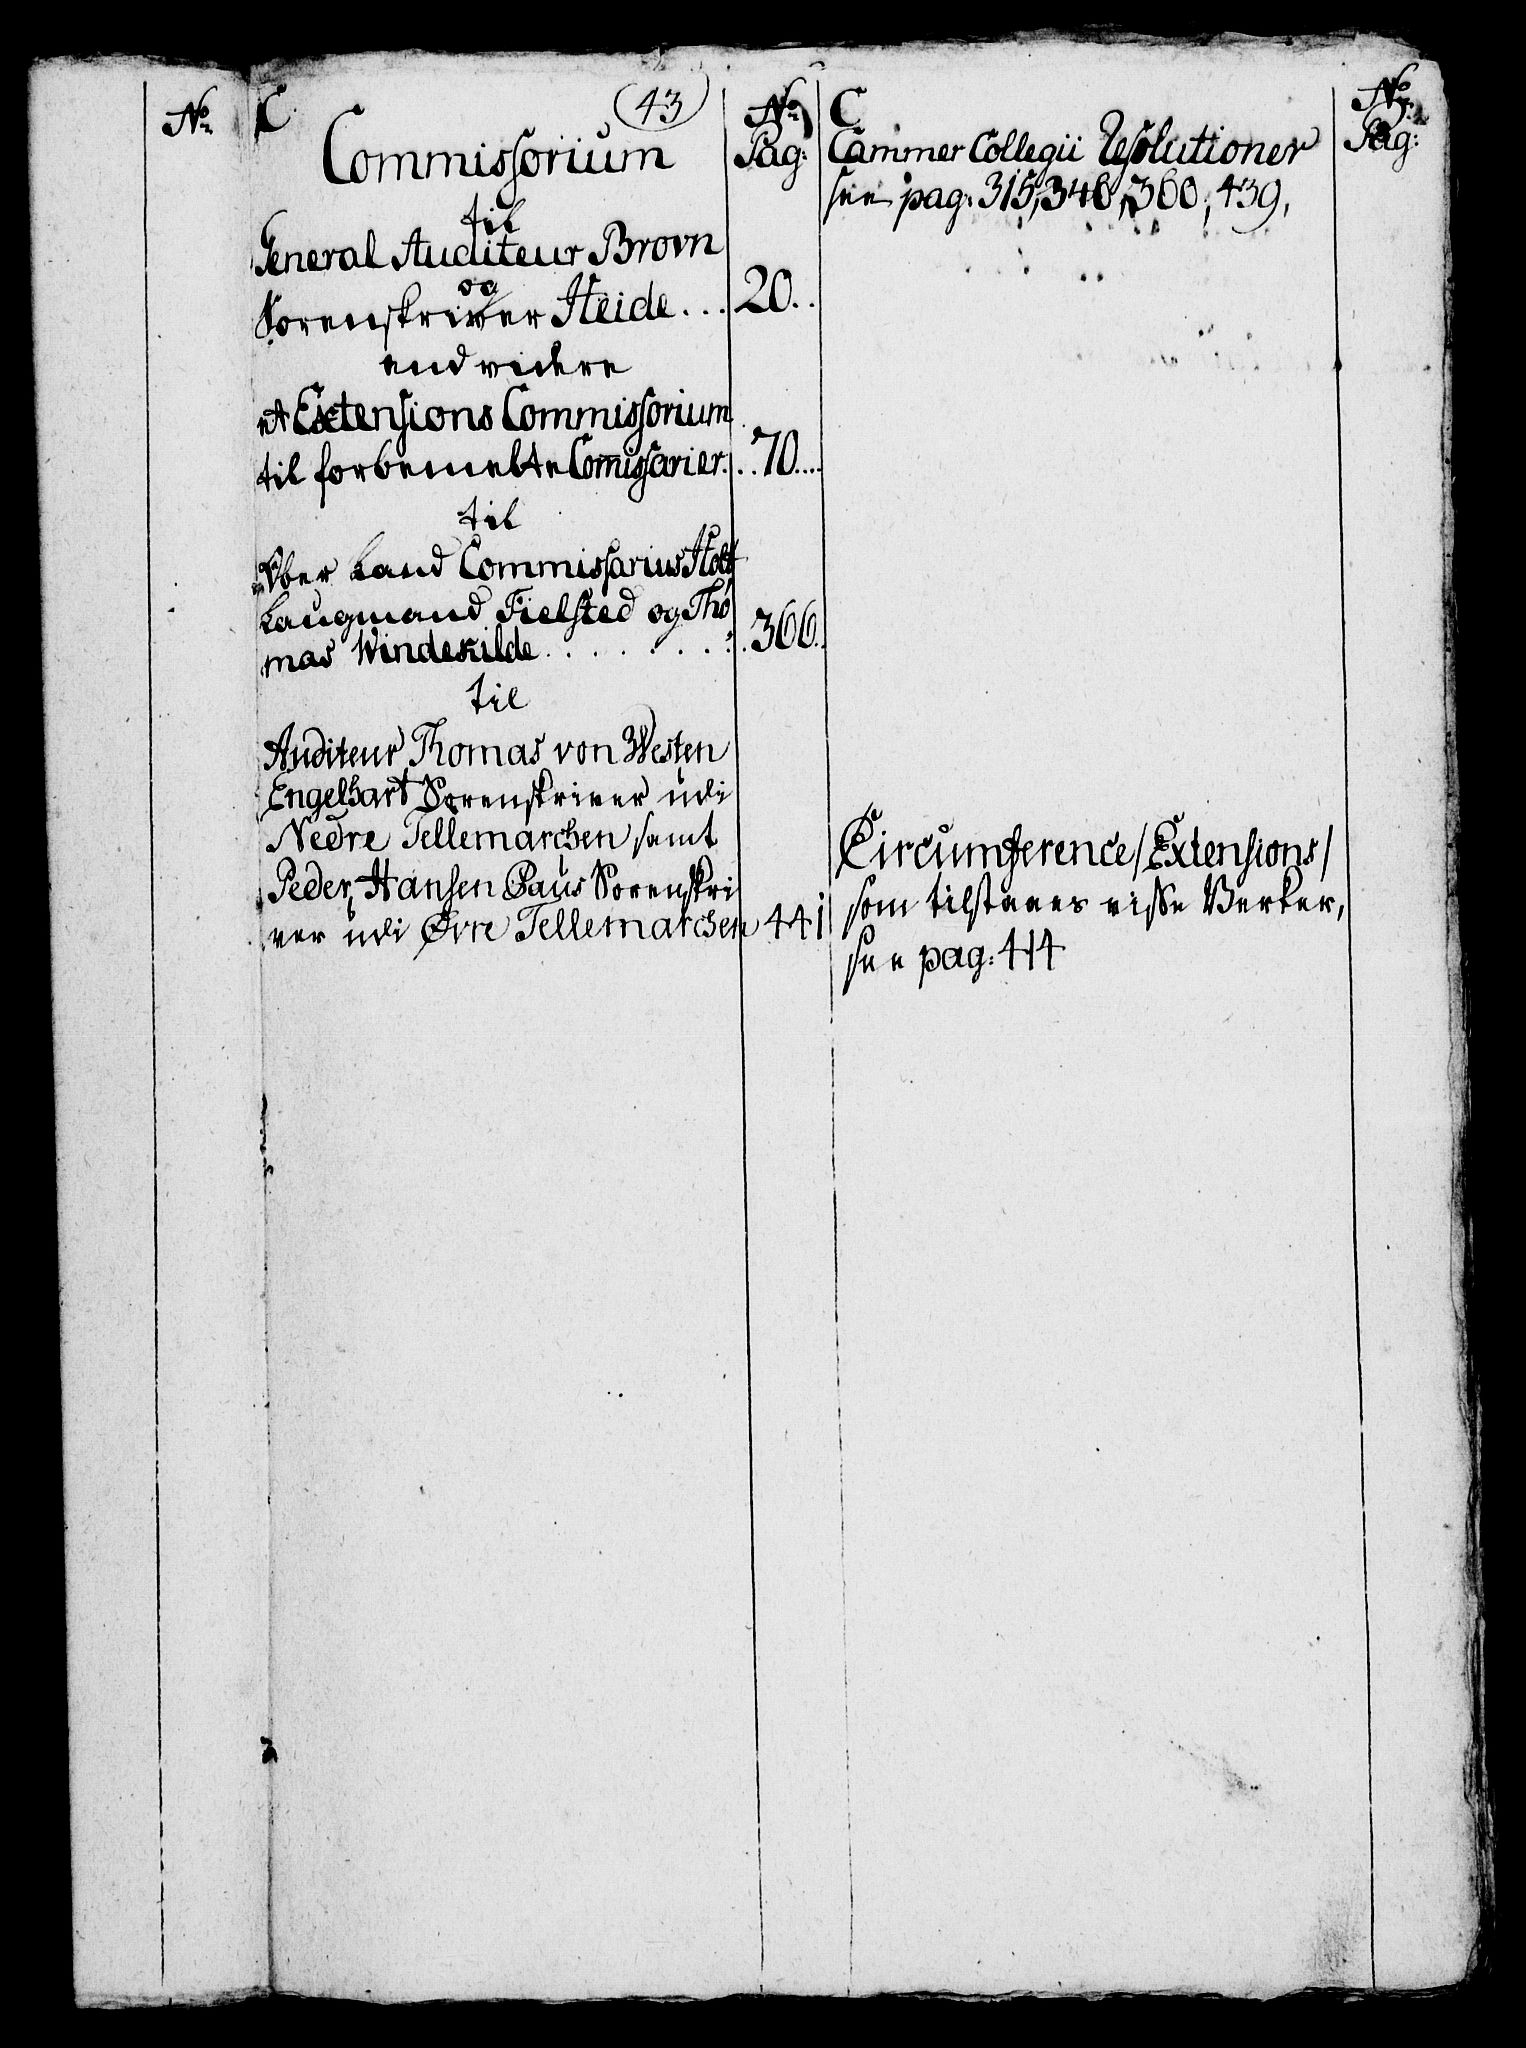 No
C
43
No
Pag:
Commissorium
til
General Auditeur Brovn
og
Sorenskriver Heide... 20..
end videre
et Extensions Commissorium
til forbemelte Comissarier. ..70....
til
Ober Land Commissarius Holt
Laugmand Fielsted og Tho
mas Windekilde. . . . . . . . 366..
til
Auditeur Thomas von Westen
Engelhart Sorenskriver udi
Nedre Tellemarchen samt
Peder Hansen Paus Sorenskri
ver udi Øvre Tellemarchen 441
C
No
Pag:
Cammer Collegii Resolutioner
see pag: 315, 346, 360, 439,
Circumference/Extensions/
som tilstaaes visse Verker,
see pag: 414